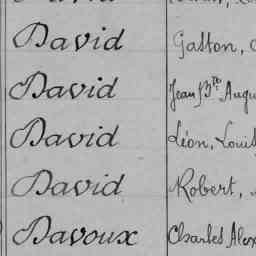 David Gaston,
David Jean Bte Augu
David Léon, Louis
David Robert,
Davoux Charles Alex